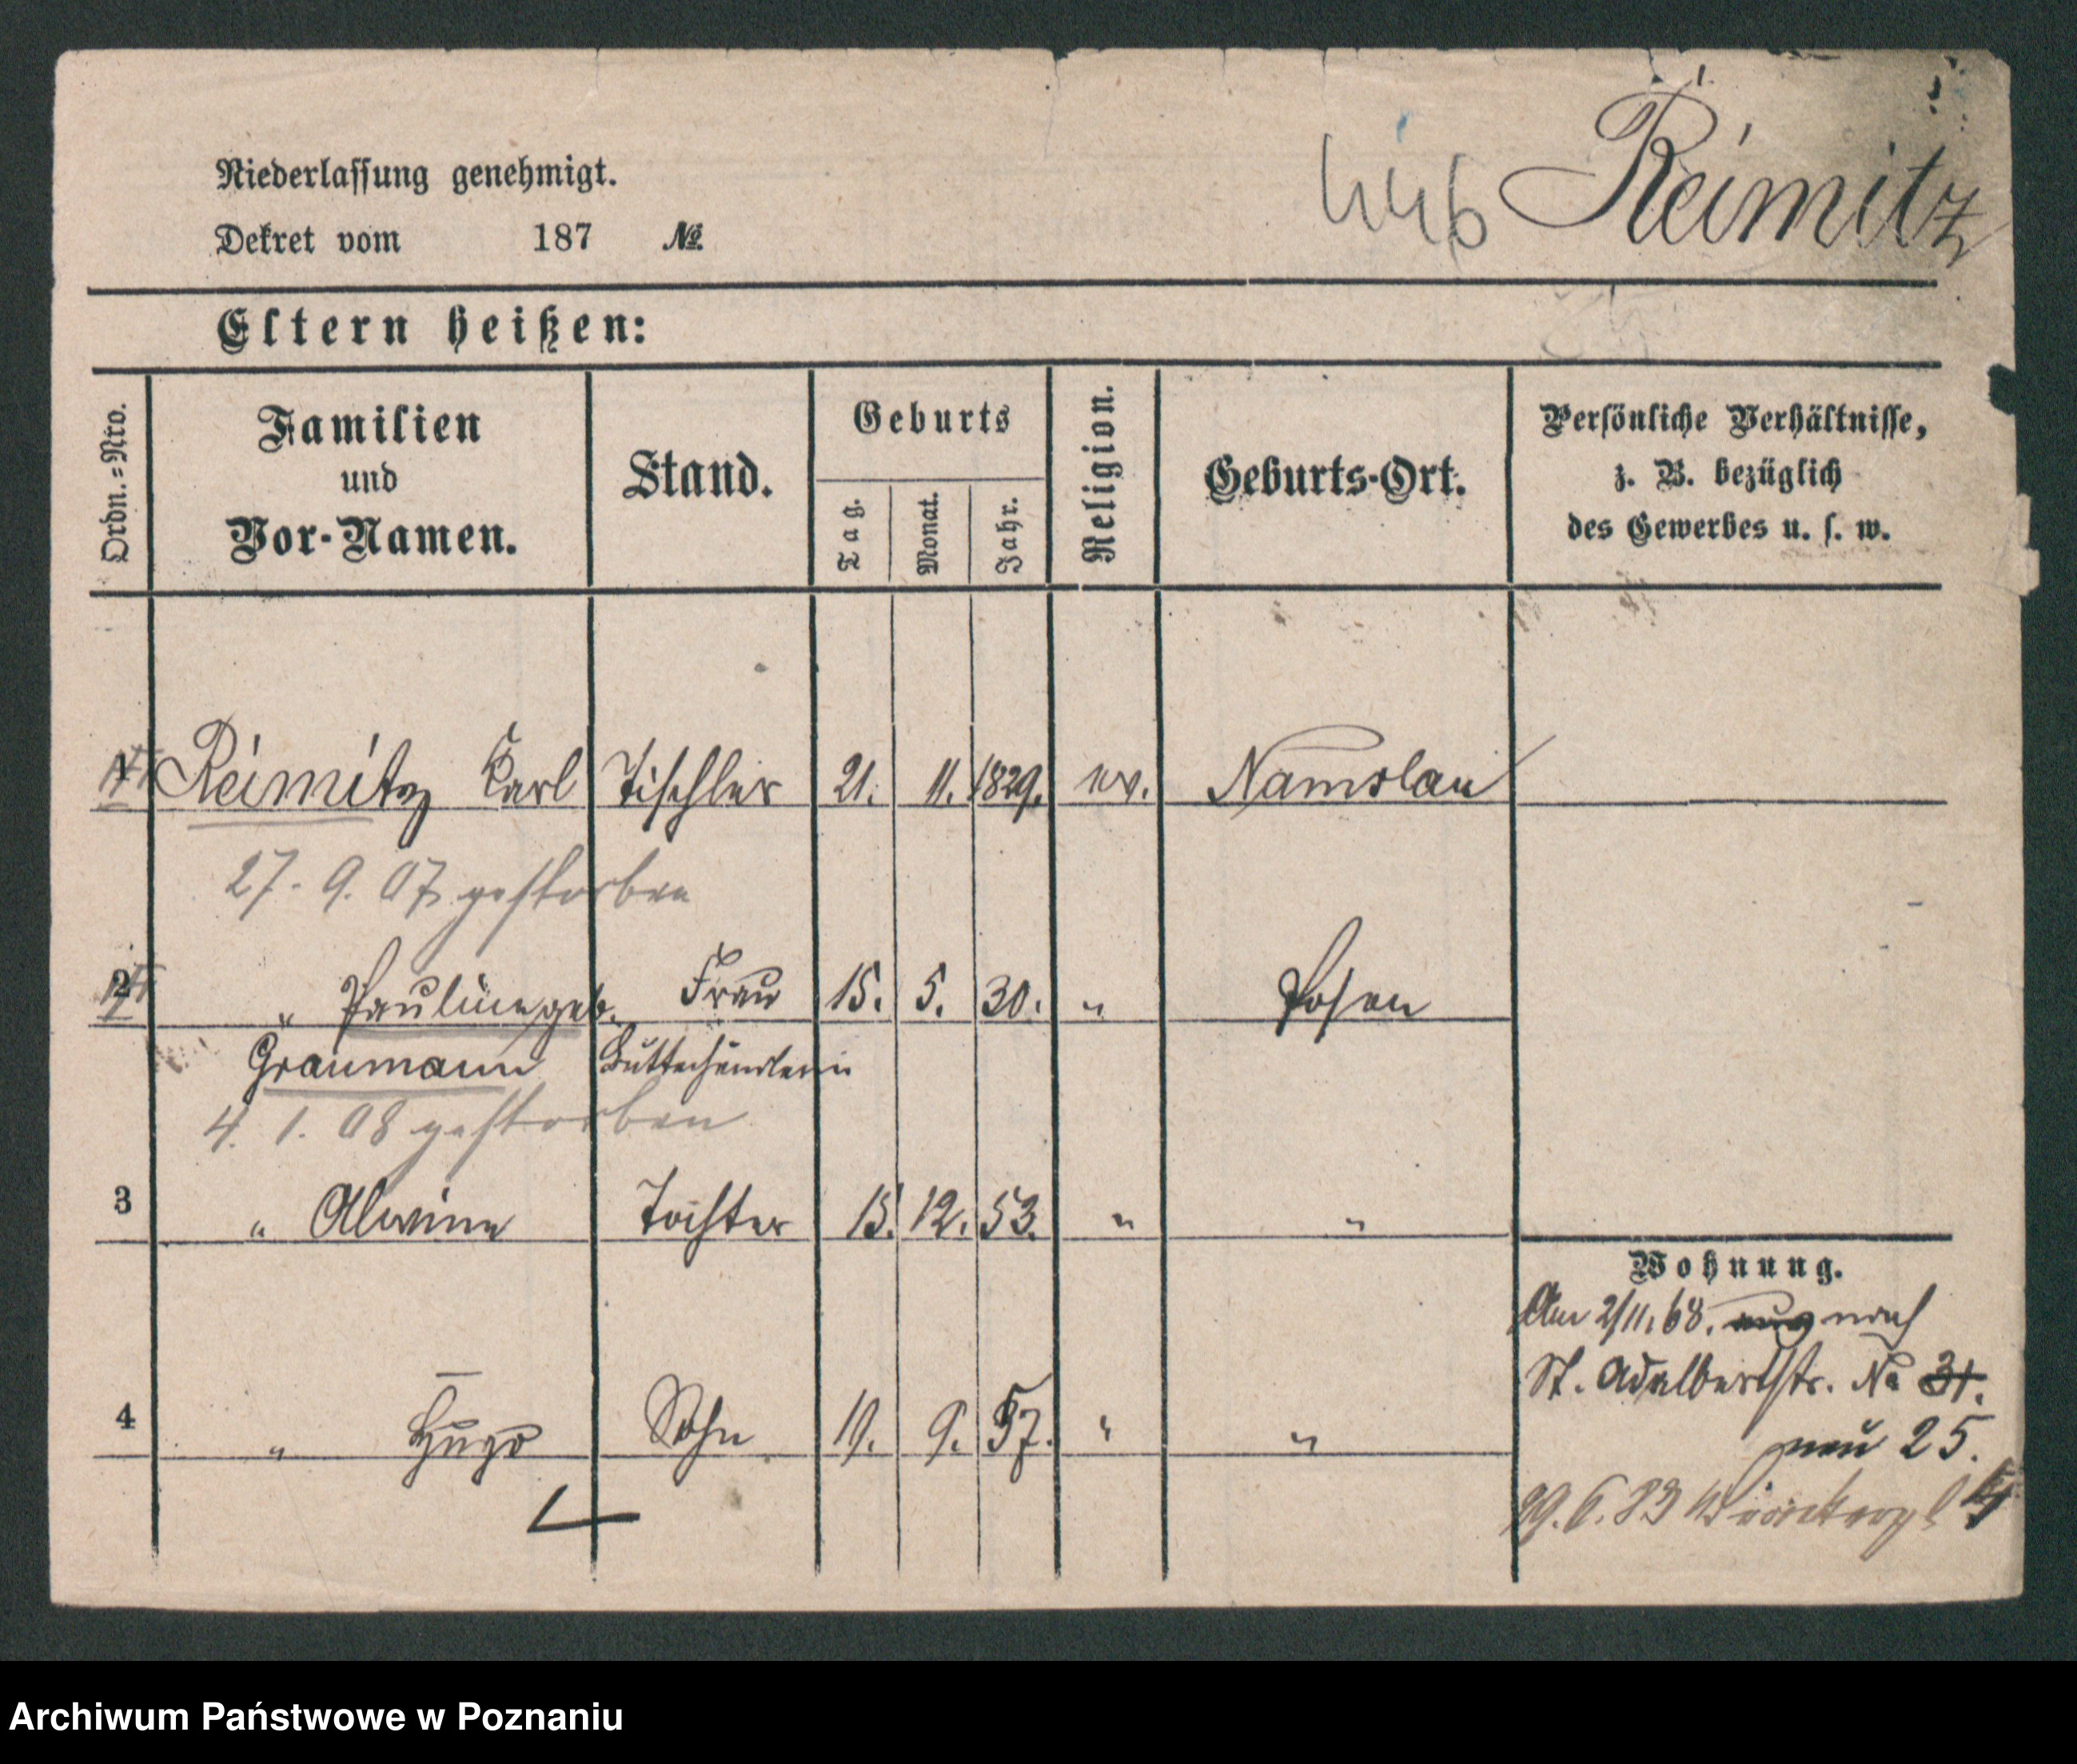 Niederlassung genehmigt.
Dekret vom 187 №
446 Reimitz
Eltern heißen:
Ordn.=Nro.
Familien
und
Vor-Namen.
Stand.
Geburts
Tag.
Monat.
Jahr.
Religion.
Geburts-Ort.
Persönliche Verhältnisse,
z. B. bezüglich
des Gewerbes u. s. w.
1 Reimitz Carl Tischler 21. 11. 1829. ev. Namslau
27. 9. 07 gestorben
2 " Pauline geb. Frau 15. 5. 30. " Posen
Graumann Butterhändlerin
4. 1. 08 gestorben
3 " Alwine Tochter 15. 12. 53. " "
Wohnung.
Am 2/11.68. nach
St. Adalbertstr. No 31.
neu 25.
4 " Hugo Sohn 19. 9. 57. " "
29.6.83
Archiwum Państwowe w Poznaniu